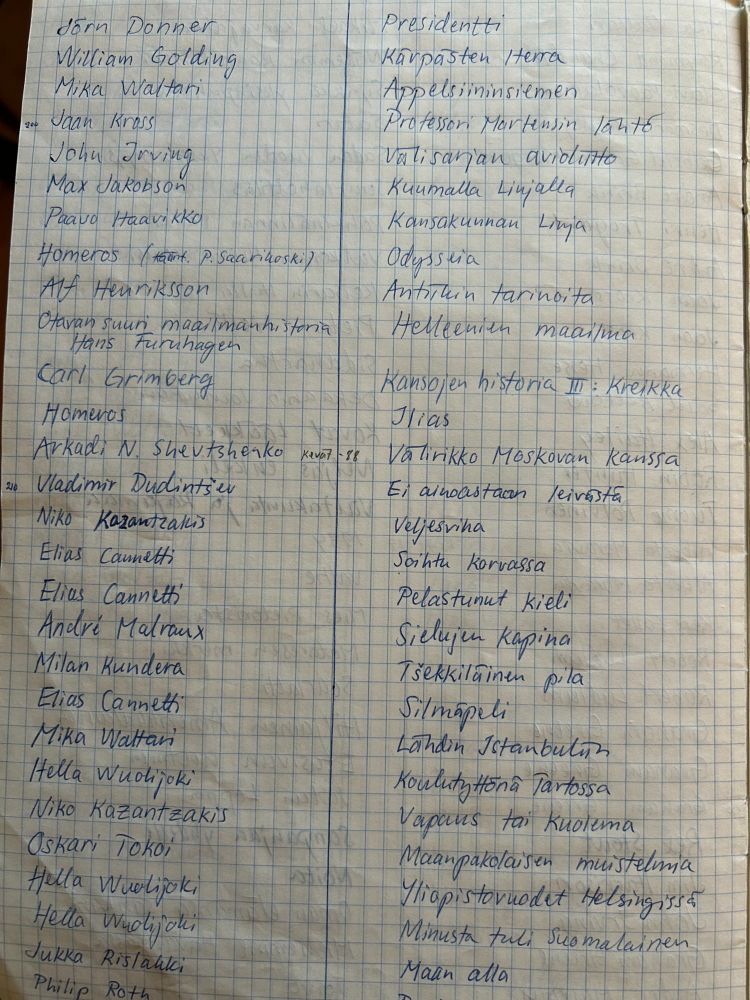 Jörn Donner Presidentti
William Golding Kärpästen Herra
Mika Waltari Appelsiininsiemen
200 Jaan Kross Professori Martensin lähtö
John Irving Välisarjan avioliitto
Max Jakobson Kuumalla Linjalla
Paavo Haavikko Kansakunnan Linja
Homeros (suom. P. Saarikoski) Odysseia
Alf Henriksson Antiikin tarinoita
Otavan suuri maailmanhistoria Helleenien maailma
Hans Furuhagen
Carl Grimberg Kansojen historia III: Kreikka
Homeros Ilias
Arkadi N. Shevtshenko kevät -88 Välirikko Moskovan kanssa
210 Vladimir Dudintšev Ei ainoastaan leivästä
Niko Kazantzakis Veljesviha
Elias Cannetti Soihtu korvassa
Elias Cannetti Pelastunut kieli
André Malraux Sielujen kapina
Milan Kundera Tšekkiläinen pila
Elias Cannetti Silmäpeli
Mika Waltari Lähdin Istanbuliin
Hella Wuolijoki Koulutyttönä Tartossa
Niko Kazantzakis Vapaus tai kuolema
Oskari Tokoi Maanpakolaisen muistelmia
Hella Wuolijoki Yliopistovuodet Helsingissä
Hella Wuolijoki Minusta tuli Suomalainen
Jukka Rislakki Maan alla
Philip Roth